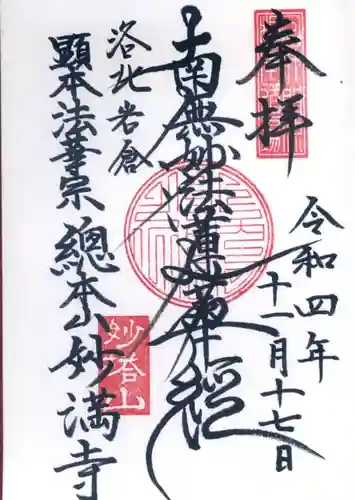 奉拝
令和四年
十一月十七日
南無妙法蓮華経
洛北岩倉
顕本法華宗 總本山 妙満寺
妙塔山